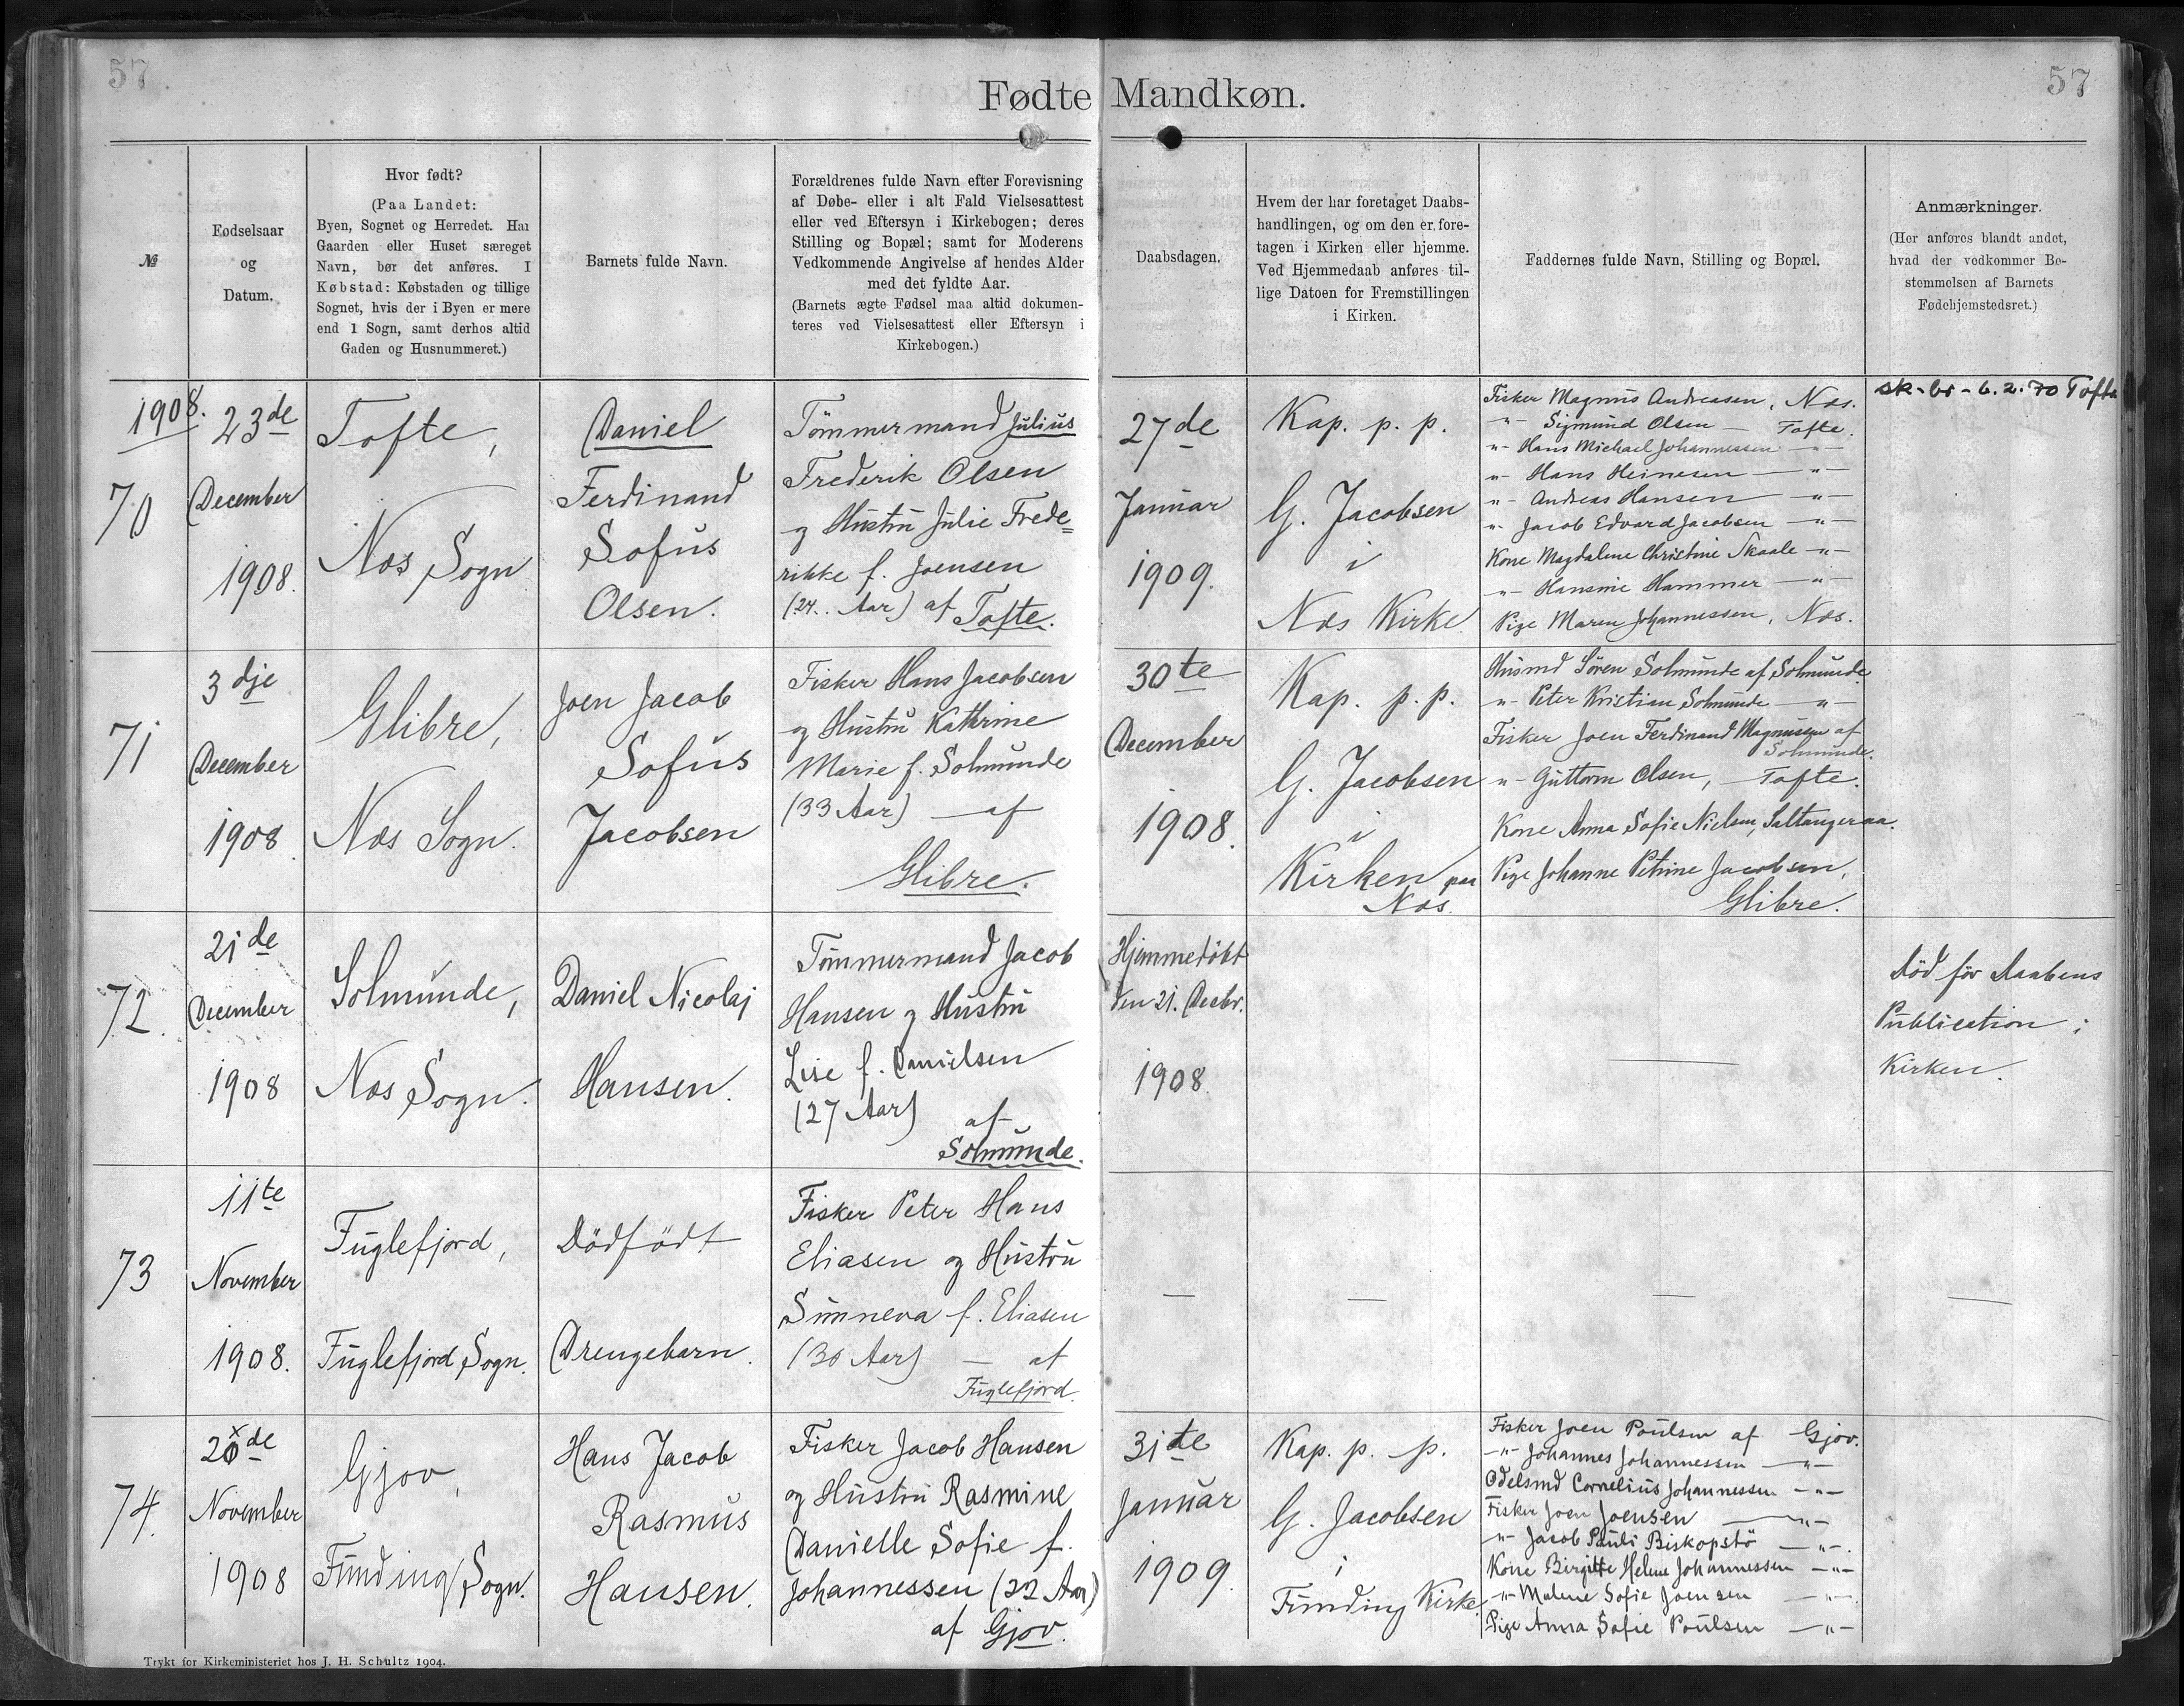 57
57
Fødte Mandkøn.
№
Fødselsaar
og
Datum.
Hvor født?
(Paa Landet:
Byen, Sognet og Herredet. Har
Gaarden eller Huset særeget
Navn, bør det anføres. I
Købstad: Købstaden og tillige
Sognet, hvis der i Byen er mere
end 1 Sogn, samt derhos altid
Gaden og Husnummeret.)
Barnets fulde Navn.
Forældrenes fulde Navn efter Forevisning
af Døbe- eller i alt Fald Vielsesattest
eller ved Eftersyn i Kirkebogen; deres
Stilling og Bopæl; samt for Moderens
Vedkommende Angivelse af hendes Alder
med det fyldte Aar.
(Barnets ægte Fødsel maa altid dokumen-
teres ved Vielsesattest eller Eftersyn i
Kirkebogen.)
Daabsdagen.
Hvem der har foretaget Daabs-
handlingen, og om den er fore-
tagen i Kirken eller hjemme.
Ved Hjemmedaab anføres til-
lige Datoen for Fremstillingen
i Kirken.
Faddernes fulde Navn, Stilling og Bopæl.
Anmærkninger.
(Her anføres blandt andet,
hvad der vedkommer Be-
stemmelsen af Barnets
Fødehjemstedsret.)
1908.
70
23de
December
1908.
Tofte,
Næs Sogn
Daniel
Ferdinand
Sofus
Olsen.
Tömmermand Julius
Frederik Olsen
og Hustru Julie Frede=
rikke f. Joensen
(24. Aar) af Tofte.
27de
Januar
1909.
Kap. p. p.
G. Jacobsen
i
Næs Kirke
Fisker Magnus Andreasen, Næs.
-"- Sigmund Olsen — Tofte.
-"- Hans Michael Johannessen -"-
-"- Hans Heinesen -"-
-"- Andreas Hansen -"-
-"- Jacob Edvard Jacobsen -"-
Kone Magdalene Christine Skaale -"-
-"- Hansine Hammer -"-
Pige Maren Johannessen, Næs.
sk-br-6.2.70 Tofte
71
3dje
December
1908.
Glibre,
Næs Sogn.
Joen Jacob
Sofus
Jacobsen
Fisker Hans Jacobsen
og Hustru Kathrine
Marie f. Solmunde
(33 Aar) — af
Glibre.
30te
December
1908.
Kap. p. p.
G. Jacobsen
i
Kirken paa
Næs.
Husmd Sören Solmunde af Solmunde
-"- Peter Kristian Solmunde -"-
Fisker Joen Ferdinand Magnusen af
Solmunde.
-"- Guttorm Olsen, — Tofte.
Kone Anna Sofie Nielsen, Saltangeraa.
Pige Johanne Petrine Jacobsen,
Glibre.
72.
21de
December
1908
Solmunde,
Næs Sogn.
Daniel Nicolaj
Hansen.
Tömmermand Jacob
Hansen og Hustru
Lise f. Danielsen
(27 Aar) af
Solmunde.
Hjemmedöbt
den 21. Decbr.
1908.
—
Död för Daabens
Publication i
Kirken.
73
11te
November
1908.
Fuglefjord,
Fuglefjord Sogn.
Dödfödt
Drengebarn.
Fisker Peter Hans
Eliasen og Hustru
Sunneva f. Eliasen
(30 Aar) — af
Fuglefjord.
—
—
—
—
74.
de
November
1908
Gjov,
Funding Sogn.
Hans Jacob
Rasmus
Hansen.
Fisker Jacob Hansen
og Hustru Rasmine
Danielle Sofie f.
Johannessen (22 Aar)
af Gjov.
31te
Januar
1909.
Kap. p. p.
G. Jacobsen
i
Funding Kirke.
Fisker Joen Poulsen af Gjov.
-"- Johannes Johannessen -"-
Odelsmd Cornelius Johannessen -"-
Fisker Joen Joensen -"-
-"- Jacob Pauli Biskopstö -"-.
Kone Birgitte Helene Johannessen -"-
-"- Malene Sofie Joensen -"-
Pige Anna Sofie Poulsen -"-
Trykt for Kirkeministeriet hos J. H. Schultz 1904.